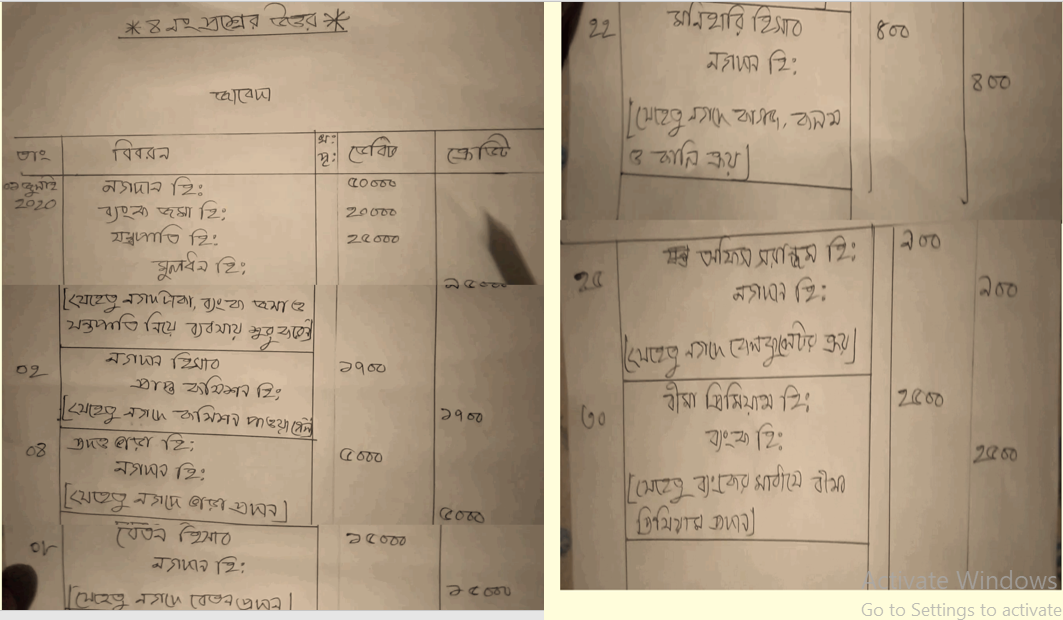 * ৪ নং প্রশ্নের উত্তর *
জাবেদা
তাং বিবরন খ: পৃ: ডেবিট ক্রেডিট
০১ জুলাই ২০২০ নগদান হি: ৫০০০০
ব্যাংক জমা হি: ২০০০০
যন্ত্রপাতি হি: ২৫০০০
মূলধন হি: ৯৫০০০
[যেহেতু নগদ টাকা, ব্যাংক জমা ও
যন্ত্রপাতি নিয়ে ব্যবসায় শুরু করেন]
০২ নগদান হিসাব ১৭০০
প্রাপ্ত কমিশন হি: ১৭০০
[যেহেতু নগদে কমিশন পাওয়া গেল]
০৪ প্রদত্ত ভাড়া হি: ৫০০০
নগদান হি: ৫০০০
[যেহেতু নগদে ভাড়া প্রদান]
০৮ বেতন হিসাব ১৫০০০
নগদান হি: ১৫০০০
[যেহেতু নগদে বেতন প্রদান]
২২ মনিহারি হিসাব ৪০০
নগদান হি: ৪০০
[যেহেতু নগদে কাগজ, কলম
ও কালি ক্রয়]
২৫ অফিস সরাঞ্জম হি: ৯০০
নগদান হি: ৯০০
[যেহেতু নগদে ক্যালকুলেটর ক্রয়]
৩০ বীমা প্রিমিয়াম হি: ২৫০০
ব্যাংক হি: ২৫০০
[যেহেতু ব্যাংকের মাধ্যমে বীমা
প্রিমিয়াম প্রদান]
Activate Windows
Go to Settings to activate